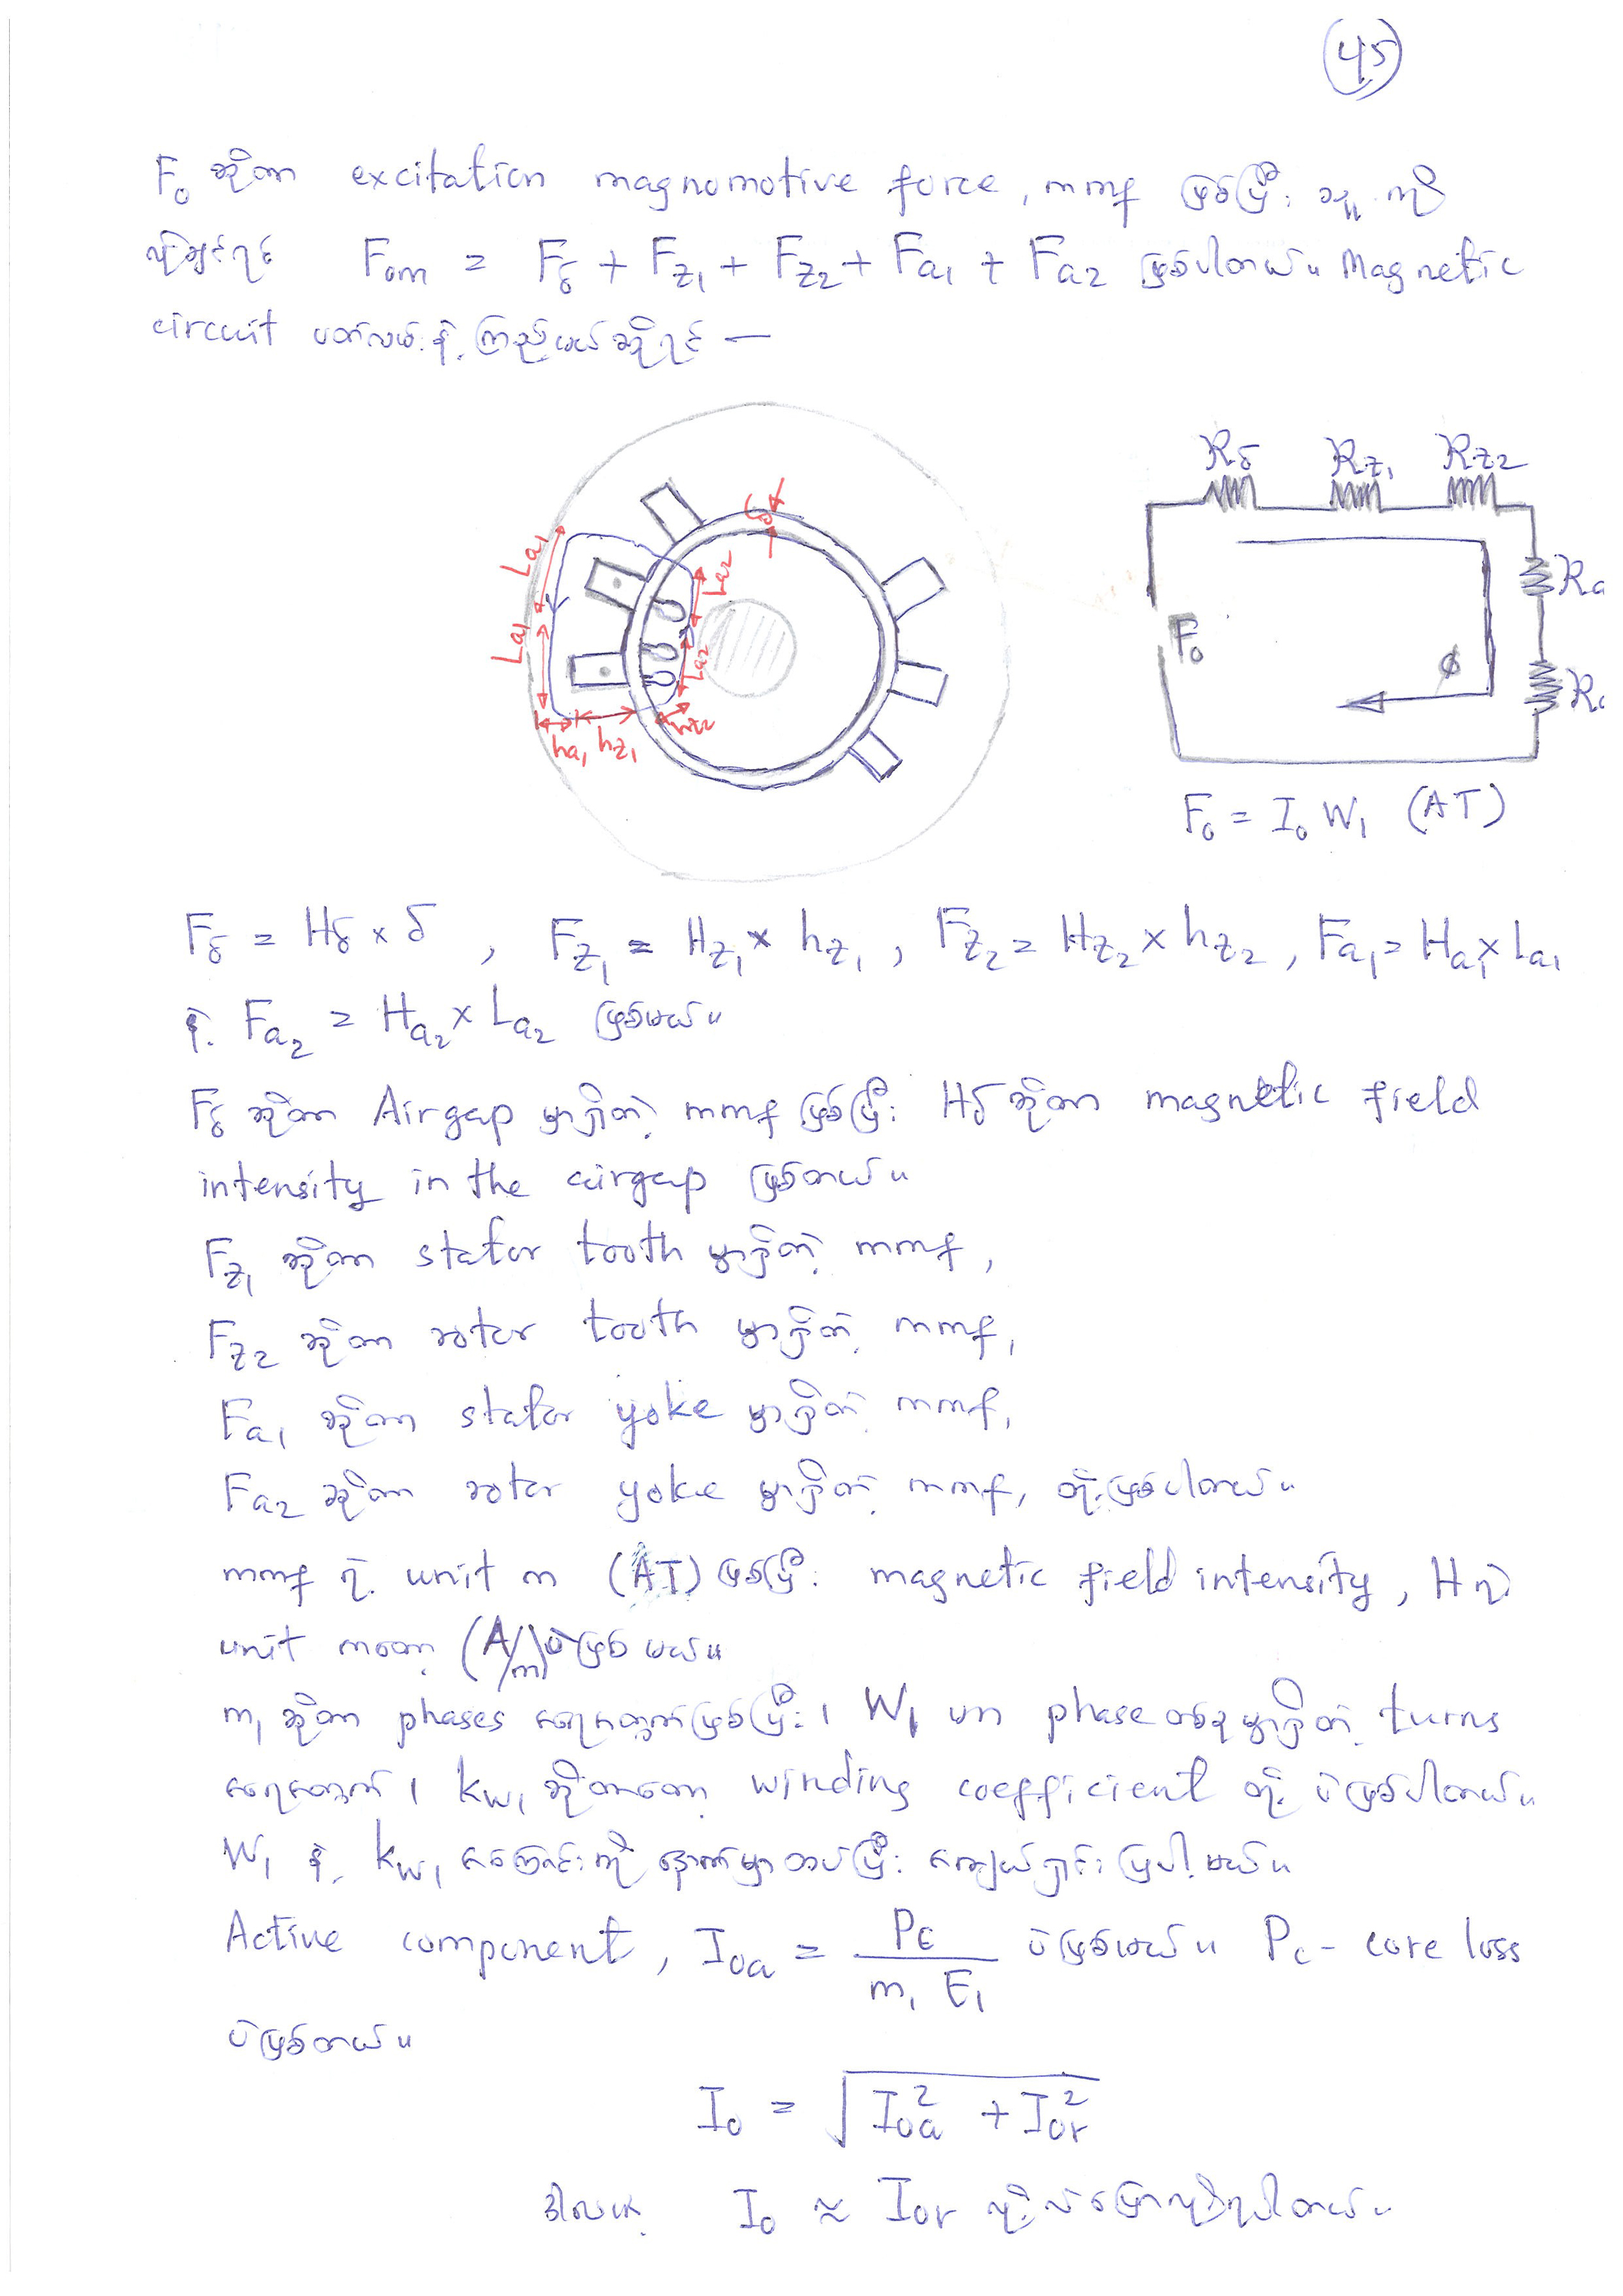 45
F₀ ဆိုတာ excitation magnomotive force, mmf ဖြစ်ပြီး သူ့ကို
လိုချင်ရင် F₀m = Fδ + Fz₁ + Fz₂ + Fa₁ + Fa₂ ဖြစ်ပါတယ်။ Magnetic
circuit ပတ်လမ်းနဲ့ ကြည့်မယ်ဆိုရင် —
La₁
La₁
ha₁
hz₁
hz₂
La₂
La₂
δ
Rδ Rz₁ Rz₂
Ra
Ra
F₀
ϕ
F₀ = I₀ W₁ (AT)
Fδ = Hδ × δ , Fz₁ = Hz₁ × hz₁ , Fz₂ = Hz₂ × hz₂ , Fa₁ = Ha₁ × La₁
နဲ့ Fa₂ = Ha₂ × La₂ ဖြစ်မယ်။
Fδ ဆိုတာ Airgap မှာရှိတဲ့ mmf ဖြစ်ပြီး Hδ ဆိုတာ magnetic field
intensity in the airgap ဖြစ်တယ်။
Fz₁ ဆိုတာ stator tooth မှာရှိတဲ့ mmf,
Fz₂ ဆိုတာ rotor tooth မှာရှိတဲ့ mmf,
Fa₁ ဆိုတာ stator yoke မှာရှိတဲ့ mmf,
Fa₂ ဆိုတာ rotor yoke မှာရှိတဲ့ mmf, တို့ဖြစ်ပါတယ်။
mmf ရဲ့ unit က (AT) ဖြစ်ပြီး magnetic field intensity, H ရဲ့
unit ကတော့ (A/m) ပဲဖြစ်မယ်။
m₁ ဆိုတာ phases အရေအတွက်ဖြစ်ပြီး၊ W₁ က phase တစ်ခုမှာရှိတဲ့ turns
အရေအတွက်၊ kw₁ ဆိုတာတော့ winding coefficient တို့ ပဲဖြစ်ပါတယ်။
W₁ နဲ့ kw₁ အကြောင်းကို နောက်မှာထပ်ပြီး အကျယ်ရှင်းပြပါ့မယ်။
Active component, I₀a = Pc / m₁ E₁ ပဲဖြစ်မယ်။ Pc - core loss
ပဲဖြစ်တယ်။
I₀ = √(I₀a² + I₀r²)
ဒါပေမဲ့ I₀ ≈ I₀r လို့လဲပြောလို့ရပါတယ်။